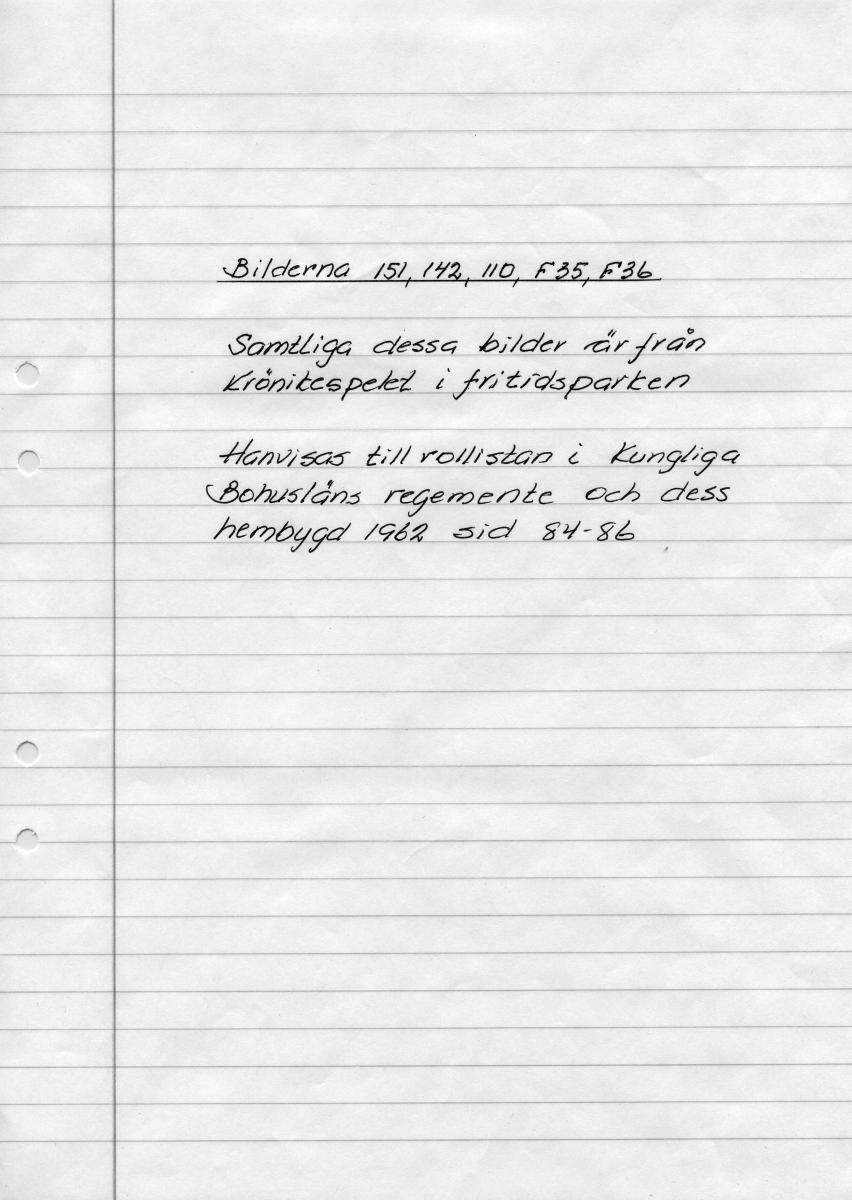 Bilderna 151, 142, 110, F35, F36
Samtliga dessa bilder är från
Krönikespelet i fritidsparken
Hänvisas till rollistan i Kungliga
Bohusläns regemente och dess
hembygd 1962 sid 84-86